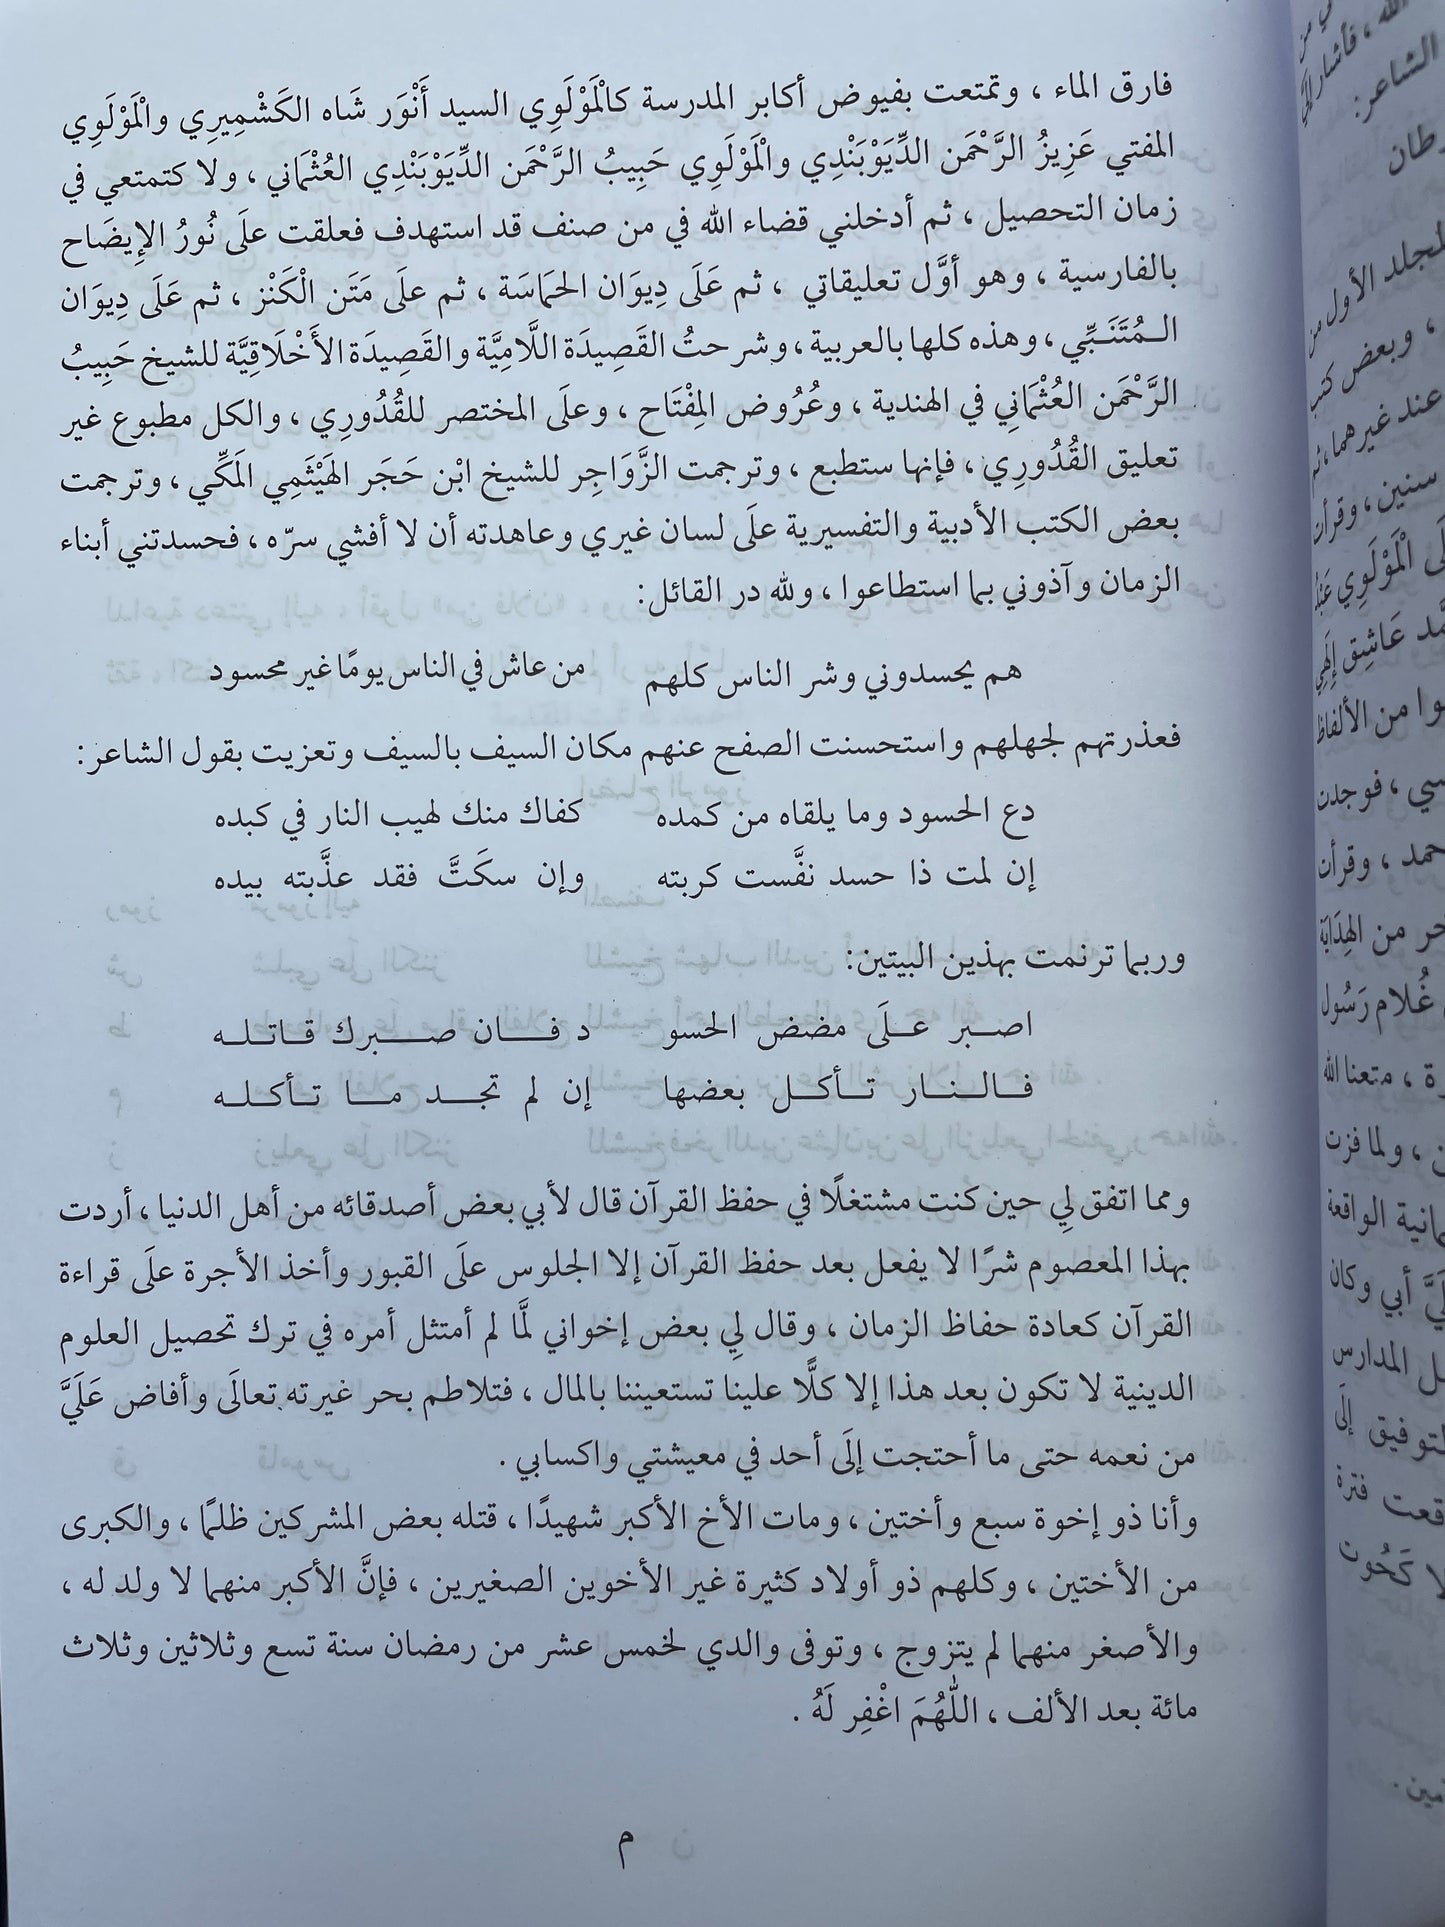 فارق الماء ، وتمتعت بفيوض أكابر المدرسة كالْمَوْلَوِي السيد أَنْوَر شَاه الكَشْمِيرِي والْمَوْلَوِي
المفتي عَزِيزُ الرَّحْمَن الدِّيَوْبَنْدِي والْمَوْلَوِي حَبِيبُ الرَّحْمَن الدِّيَوْبَنْدِي العُثْمَاني ، ولا كتمتعي في
زمان التحصيل ، ثم أدخلني قضاء الله في من صنف قد استهدف فعلقت علَى نُورُ الإِيضَاح
بالفارسية ، وهو أوَّل تعليقاتي ، ثم عَلَى دِيوَان الحَمَاسَة ، ثم علَى مَتَن الْكَنْز ، ثم عَلَى دِيوَان
الـمُتَنَبِّي ، وهذه كلها بالعربية ، وشرحتُ القَصِيدَة اللَّامِيَّة والقَصِيدَة الأَخْلَاقِيَّة للشيخ حَبِيبُ
الرَّحْمَن العُثْمَانِي في الهندية ، وعُرُوض المِفْتَاح ، وعلَى المختصر للقُدُورِي ، والكل مطبوع غير
تعليق القُدُورِي ، فإنها ستطبع ، وترجمت الزَّوَاجِر للشيخ ابْن حَجَر الهَيْثَمِي المَكِّي ، وترجمت
بعض الكتب الأدبية والتفسيرية علَى لسان غيري وعاهدته أن لا أفشي سرّه ، فحسدتني أبناء
الزمان وآذوني بما استطاعوا ، ولله در القائل:
هم يحسدوني وشر الناس كلهم من عاش في الناس يومًا غير محسود
فعذرتهم لجهلهم واستحسنت الصفح عنهم مكان السيف بالسيف وتعزيت بقول الشاعر:
دع الحسود وما يلقاه من كمده كفاك منك لهيب النار في كبده
إن لمت ذا حسد نفَّست كربته وإن سكَتَّ فقد عذَّبته بيده
وربما ترنمت بهذين البيتين:
اصبر علَى مضض الحسو د فـان صـبرك قـاتلـه
فـالـنـار تـأكـل بعضها إن لم تجـد مـا تـأكـلـه
ومما اتفق لِي حين كنت مشتغلًا في حفظ القرآن قال لأبي بعض أصدقائه من أهل الدنيا ، أردت
بهذا المعصوم شرًا لا يفعل بعد حفظ القرآن إلا الجلوس علَى القبور وأخذ الأجرة علَى قراءة
القرآن كعادة حفاظ الزمان ، وقال لِي بعض إخواني لَّما لم أمتثل أمره في ترك تحصيل العلوم
الدينية لا تكون بعد هذا إلا كلًّا علينا تستعيننا بالمال ، فتلاطم بحر غيرته تعالَى وأفاض عَلَيَّ
من نعمه حتى ما أحتجت إلَى أحد في معيشتي واكسابي .
وأنا ذو إخوة سبع وأختين ، ومات الأخ الأكبر شهيدًا ، قتله بعض المشركين ظلمًا ، والكبرى
من الأختين ، وكلهم ذو أولاد كثيرة غير الأخوين الصغيرين ، فإنَّ الأكبر منهما لا ولد له ،
والأصغر منهما لم يتزوج ، وتوفى والدي لخمس عشر من رمضان سنة تسع وثلاثين وثلاث
مائة بعد الألف ، اللَّهُمَ اغْفِر لَهُ .
م
الشاعر:
لمجلد الأول من
، وبعض كتب
عند غيرهما، ثم
سنين ، وقرأت
الْمَوْلَوِي
عَاشِق إِلَهِي
من الألفاظ
، فوجدت
، وقرأت
من الهِدَايَة
غُلَام رَسُول
، متعنا الله
، ولما فزت
الواقعة
أبي وكان
المدارس
إلَى
فترة